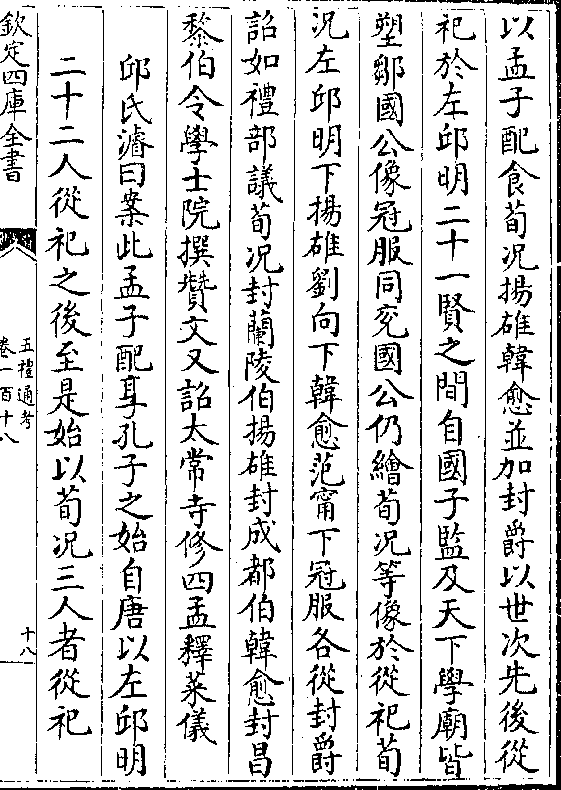 以孟子配食荀况揚雄韓愈並加封爵以世次先後從
祀於左邱明二十一賢之間自國子監及天下學廟皆
塑鄒國公像冠服同兗國公仍繪荀况等像於從祀荀
况左邱明下揚雄劉向下韓愈范甯下冠服各從封爵
詔如禮部議荀况封蘭陵伯揚雄封成都伯韓愈封昌
黎伯令學士院撰贊文又詔太常寺修四孟釋菜儀
邱氏濬曰案此孟子配享孔子之始自唐以左邱明
二十二人從祀之後至是始以荀况三人者從祀
欽定四庫全書
五禮通考
卷一百十八
十八